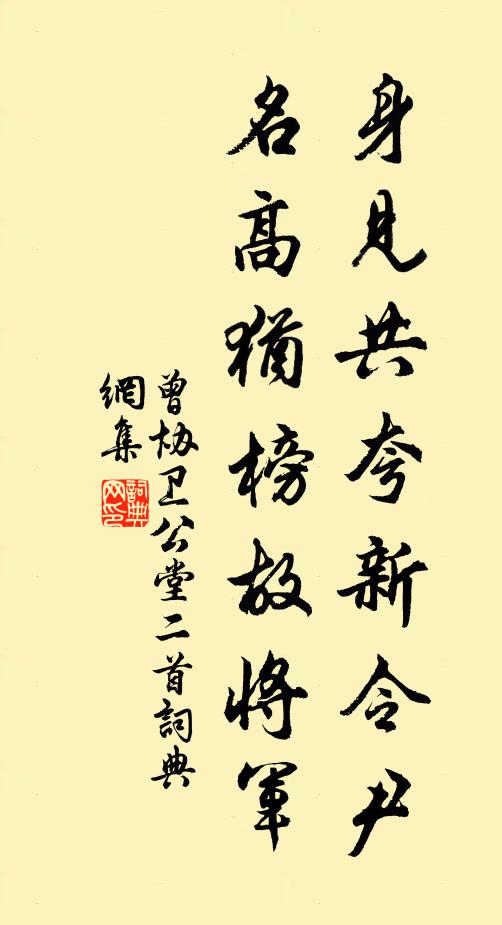 身見共夸新令尹
名高猶榜故將軍
曾協卫公堂二首詞典
網集
詞典
网印